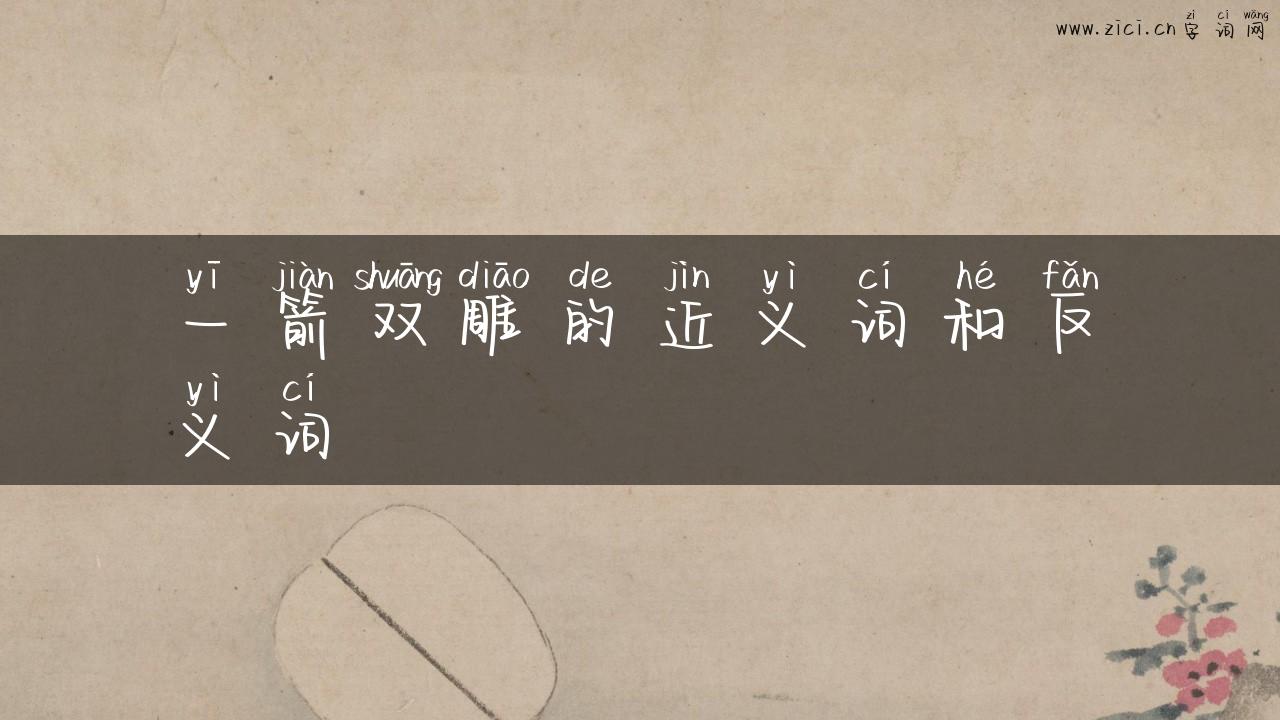 zì cí wǎng
www.zici.cn字词网
yī jiàn shuāng diāo de jìn yì cí hé fǎn
一箭双雕的近义词和反
yì cí
义词